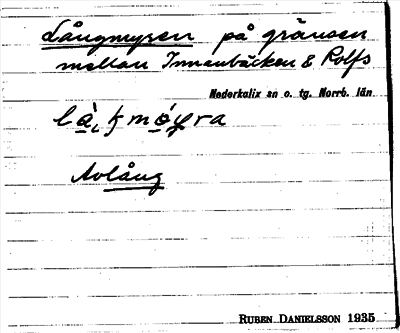 Långmyren på gränsen
mellan Innanbäcken & Rolfs
Nederkalix sn o. tg. Norrb. län
Avlång
RUBEN DANIELSSON 1935